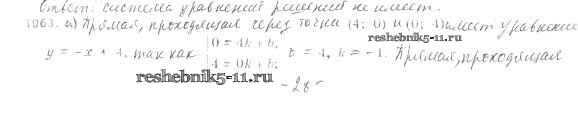 Ответ: система уравнений решений не имеет.
1063. а) Прямая, проходящая через точки (4; 0) и (0; 4) имеет уравнение
reshebnik5-11.ru
y = -x + 4, так как 0 = 4k + b; b = 4, k = -1. Прямая, проходящая
4 = 0k + b;
reshebnik5-11.ru